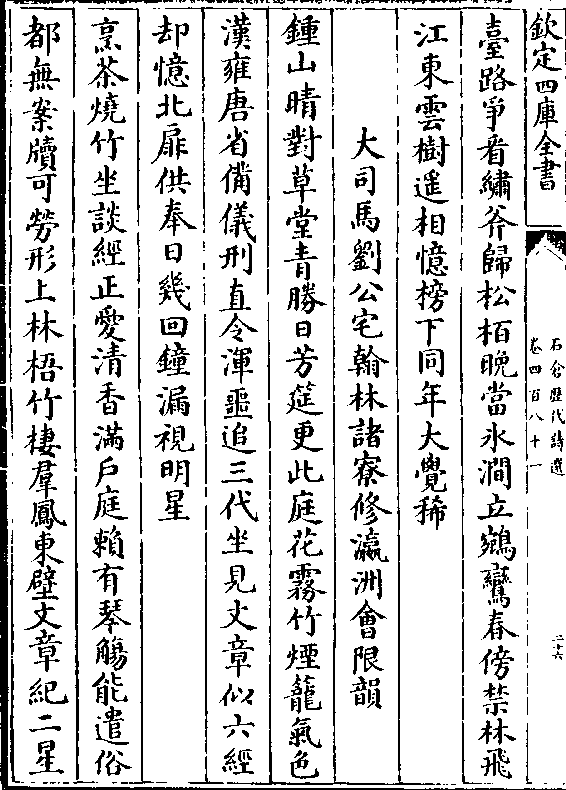 欽定四庫全書
石倉歷代詩選
卷四百八十一
二十六
臺路爭看繡斧歸松栢晩當氷澗立鵷鸞春傍禁林飛
江東雲樹遥相憶榜下同年大覺稀
大司馬劉公宅翰林諸寮修瀛洲會限韻
鍾山晴對草堂青勝日芳筵更此庭花霧竹煙籠氣色
漢雍唐省備儀刑直令渾噩追三代坐見文章似六經
却憶北扉供奉日幾回鐘漏視明星
烹茶燒竹坐談經正愛清香滿戶庭賴有琴觴能遣俗
都無案牘可勞形上林梧竹棲羣鳳東壁文章紀二星